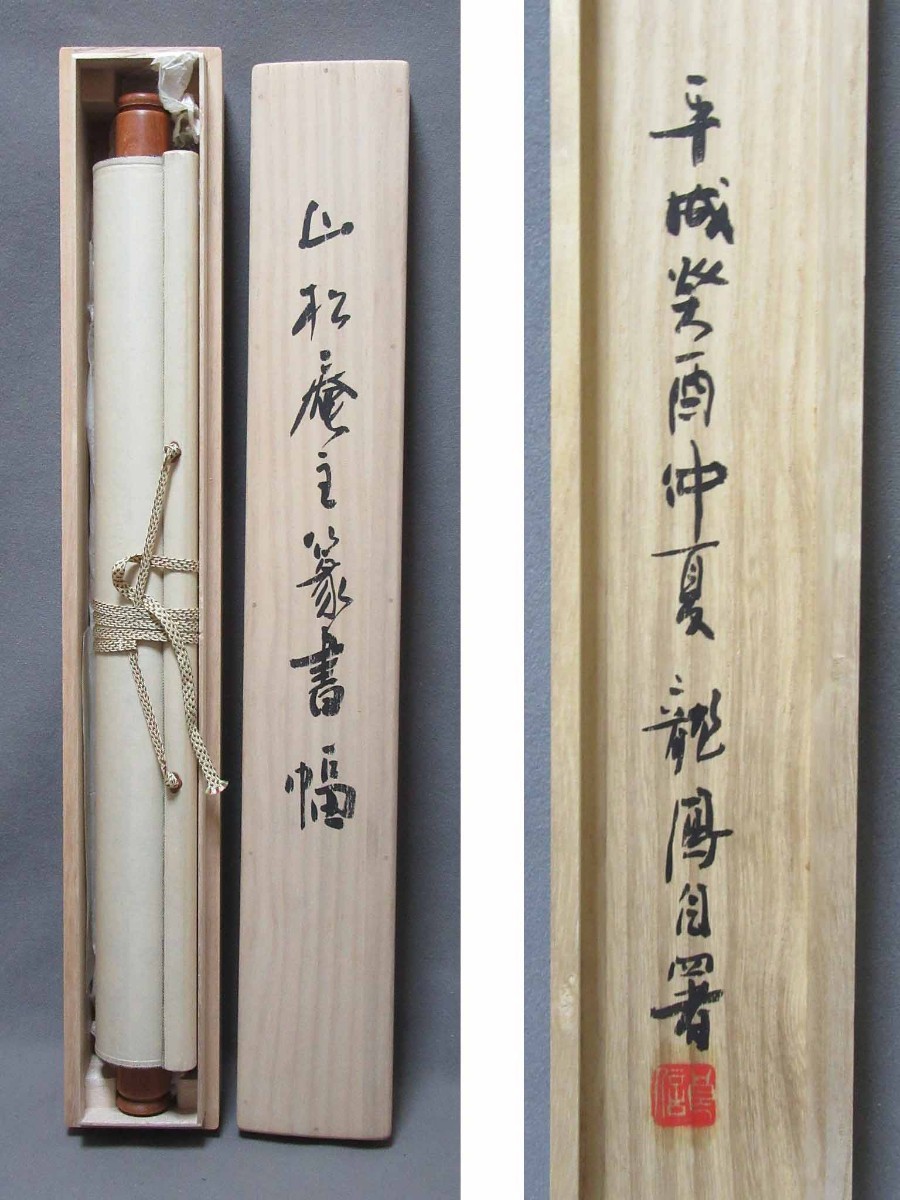 山松庵主篆書幅
平成癸酉仲夏 龍鳳自署